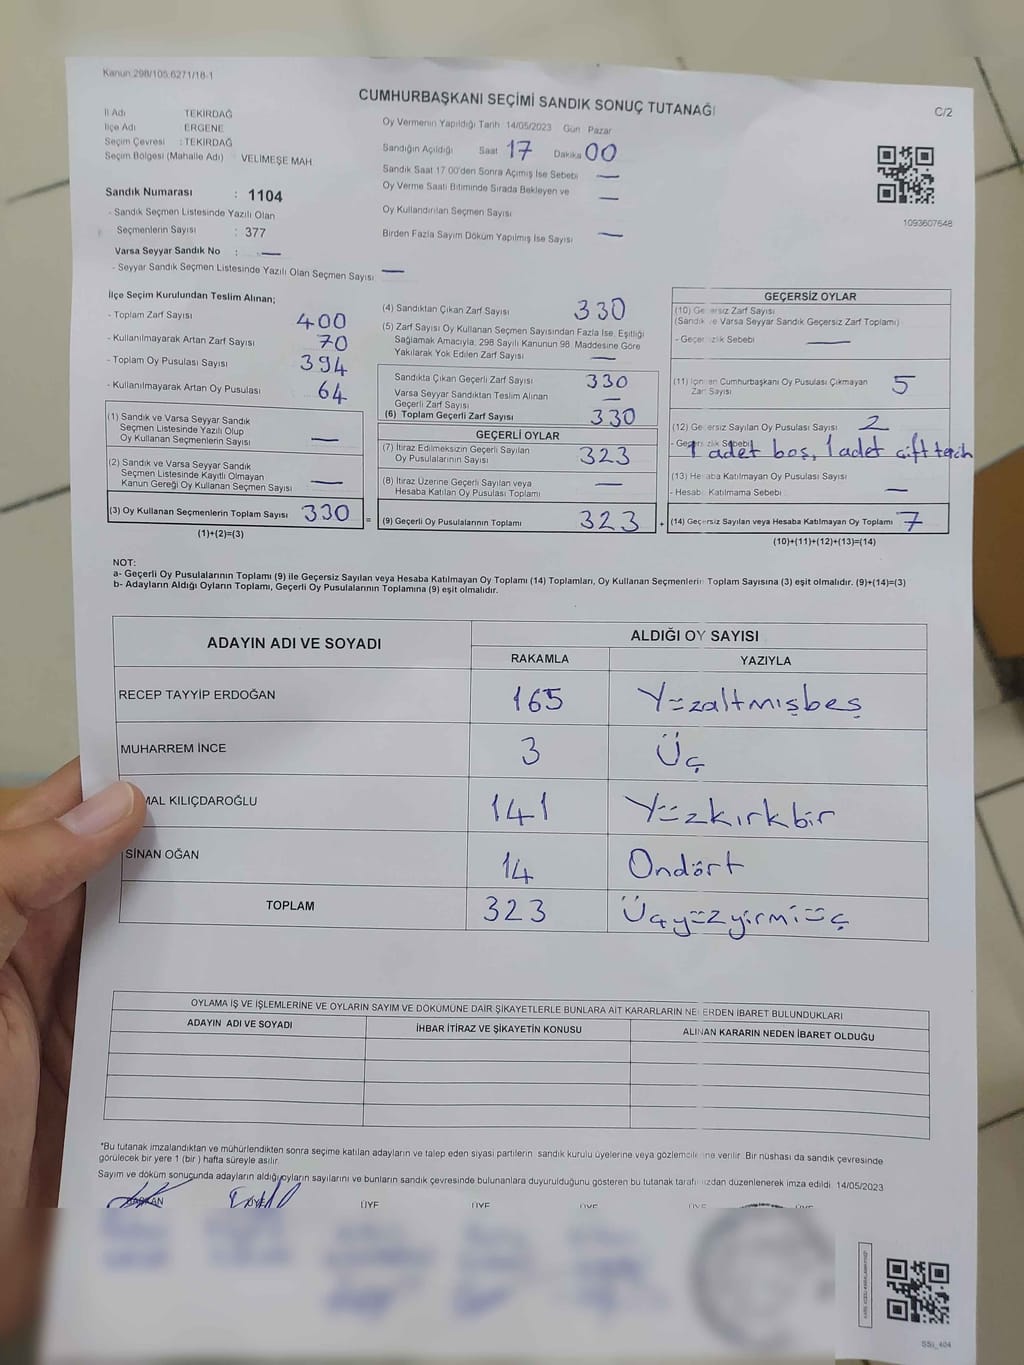 Kanun:298/105,6271/18-1
CUMHURBAŞKANI SEÇİMİ SANDIK SONUÇ TUTANAĞI
C/2
İl Adı TEKİRDAĞ
İlçe Adı ERGENE
Seçim Çevresi : TEKİRDAĞ
Seçim Bölgesi (Mahalle Adı) VELİMEŞE MAH
Sandık Numarası : 1104
- Sandık Seçmen Listesinde Yazılı Olan
Seçmenlerin Sayısı : 377
Varsa Seyyar Sandık No : —
- Seyyar Sandık Seçmen Listesinde Yazılı Olan Seçmen Sayısı —
Oy Vermenin Yapıldığı Tarih 14/05/2023 Gün Pazar
Sandığın Açıldığı Saat 17 Dakika 00
Sandık Saat 17 00'den Sonra Açımış İse Sebebi —
Oy Verme Saati Bitiminde Sırada Bekleyen ve —
Oy Kullandırılan Seçmen Sayısı
Birden Fazla Sayım Döküm Yapılmış İse Sayısı —
1093607648
İlçe Seçim Kurulundan Teslim Alınan;
- Toplam Zarf Sayısı 400
- Kullanılmayarak Artan Zarf Sayısı 70
- Toplam Oy Pusulası Sayısı 394
- Kullanılmayarak Artan Oy Pusulası 64
(1) Sandık ve Varsa Seyyar Sandık
Seçmen Listesinde Yazılı Olup
Oy Kullanan Seçmenlerin Sayısı —
(2) Sandık ve Varsa Seyyar Sandık
Seçmen Listesinde Kayıtlı Olmayan
Kanun Gereği Oy Kullanan Seçmen Sayısı —
(3) Oy Kullanan Seçmenlerin Toplam Sayısı 330
(1)+(2)=(3)
(4) Sandıktan Çıkan Zarf Sayısı 330
(5) Zarf Sayısı Oy Kullanan Seçmen Sayısından Fazla İse, Eşitliği
Sağlamak Amacıyla, 298 Sayılı Kanunun 98. Maddesine Göre
Yakılarak Yok Edilen Zarf Sayısı —
Sandıkta Çıkan Geçerli Zarf Sayısı 330
Varsa Seyyar Sandıktan Teslim Alınan
Geçerli Zarf Sayısı —
(6) Toplam Geçerli Zarf Sayısı 330
GEÇERLİ OYLAR
(7) İtiraz Edilmeksizin Geçerli Sayılan
Oy Pusulalarının Sayısı 323
(8) İtiraz Üzerine Geçerli Sayılan veya
Hesaba Katılan Oy Pusulası Toplamı —
= (9) Geçerli Oy Pusulalarının Toplamı 323 +
GEÇERSİZ OYLAR
(10) Geçersiz Zarf Sayısı
(Sandık ve Varsa Seyyar Sandık Geçersiz Zarf Toplamı)
- Geçersizlik Sebebi —
(11) İçinden Cumhurbaşkanı Oy Pusulası Çıkmayan
Zarf Sayısı 5
(12) Geçersiz Sayılan Oy Pusulası Sayısı 2
- Geçersizlik Sebebi 1 adet boş, 1 adet çift tercih
(13) Hesaba Katılmayan Oy Pusulası Sayısı
- Hesaba Katılmama Sebebi —
(14) Geçersiz Sayılan veya Hesaba Katılmayan Oy Toplamı 7
(10)+(11)+(12)+(13)=(14)
NOT:
a- Geçerli Oy Pusulalarının Toplamı (9) ile Geçersiz Sayılan veya Hesaba Katılmayan Oy Toplamı (14) Toplamları, Oy Kullanan Seçmenlerin Toplam Sayısına (3) eşit olmalıdır. (9)+(14)=(3)
b- Adayların Aldığı Oyların Toplamı, Geçerli Oy Pusulalarının Toplamına (9) eşit olmalıdır.
ADAYIN ADI VE SOYADI ALDIĞI OY SAYISI
RAKAMLA YAZIYLA
RECEP TAYYİP ERDOĞAN 165 Yüzaltmışbeş
MUHARREM İNCE 3 Üç
MAL KILIÇDAROĞLU 141 Yüzkırkbir
SİNAN OĞAN 14 Ondört
TOPLAM 323 Üçyüzyirmiüç
OYLAMA İŞ VE İŞLEMLERİNE VE OYLARIN SAYIM VE DÖKÜMÜNE DAİR ŞİKAYETLERLE BUNLARA AİT KARARLARIN NELERDEN İBARET BULUNDUKLARI
ADAYIN ADI VE SOYADI İHBAR İTİRAZ VE ŞİKAYETİN KONUSU ALINAN KARARIN NEDEN İBARET OLDUĞU
*Bu tutanak imzalandıktan ve mühürlendikten sonra seçime katılan adayların ve talep eden siyasi partilerin sandık kurulu üyelerine veya gözlemcilerine verilir. Bir nüshası da sandık çevresinde
görülecek bir yere 1 (bir) hafta süreyle asılır.
Sayım ve döküm sonucunda adayların aldığı oyların sayılarını ve bunların sandık çevresinde bulunanlara duyurulduğunu gösteren bu tutanak tarafımızdan düzenlenerek imza edildi. 14/05/2023
BAŞKAN ÜYE ÜYE ÜYE ÜYE ÜYE ÜYE
SSİ_404